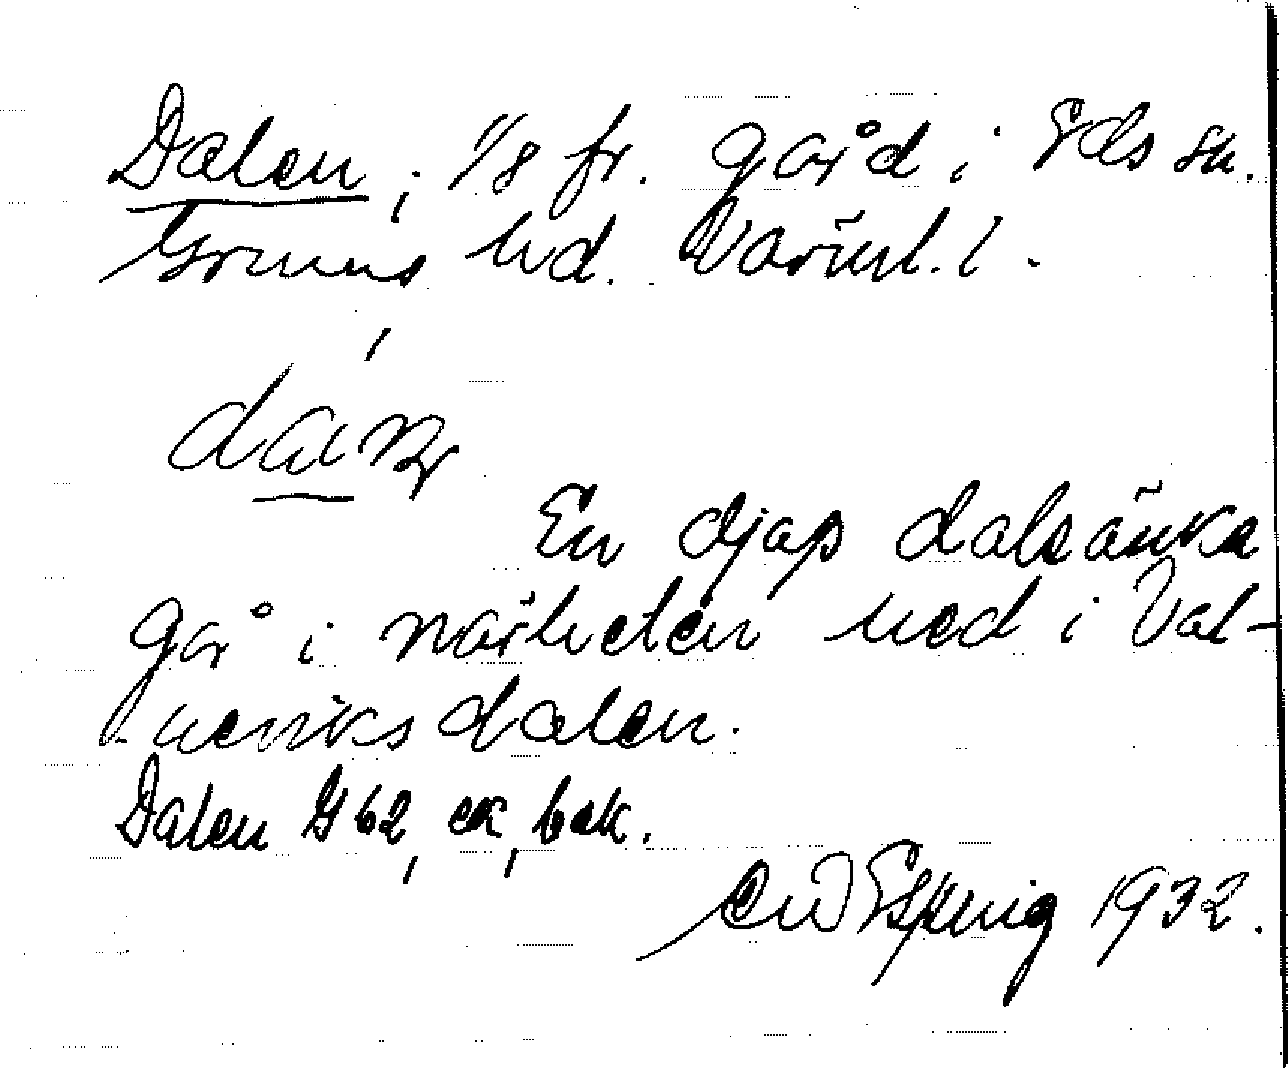 Dalen, 1/8 fr. gård i Eds sn.
Grums hd. Värml. l.
En djap dalsänka
går i närheten ned i Val-
neviksdalen.
Dalen G 62, ek, bok.
1932.